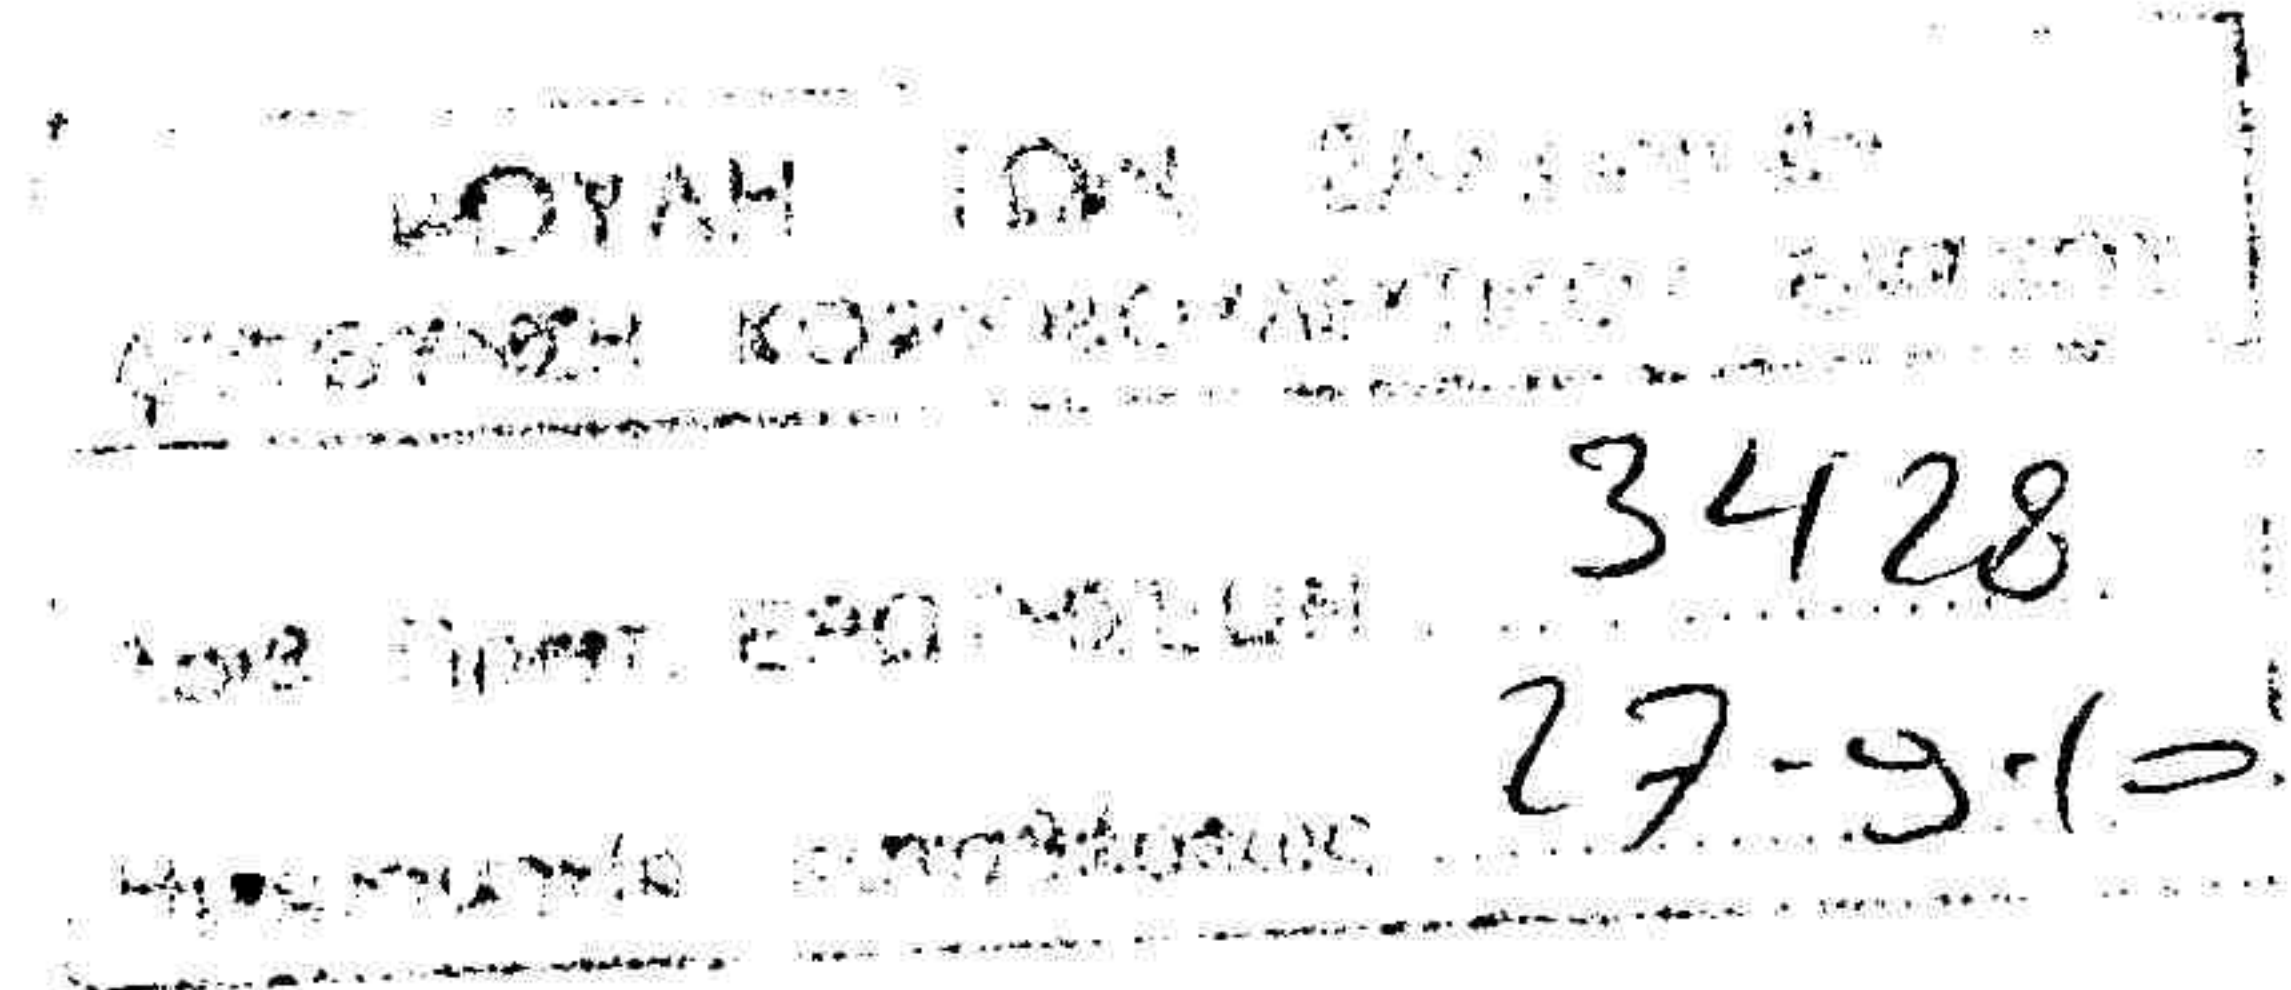 ΒΟΥΛΗ ΤΩΝ ΕΛΛΗΝΩΝ
ΔΙΕΥΘΥΝΣΗ ΚΟΙΝΟΒΟΥΛΕΥΤΙΚΟΥ ΕΛΕΓΧΟΥ
Αριθ. Πρωτ. ΕΡΩΤΗΣΕΩΝ 3428
Ημερομηνία 27-9-10